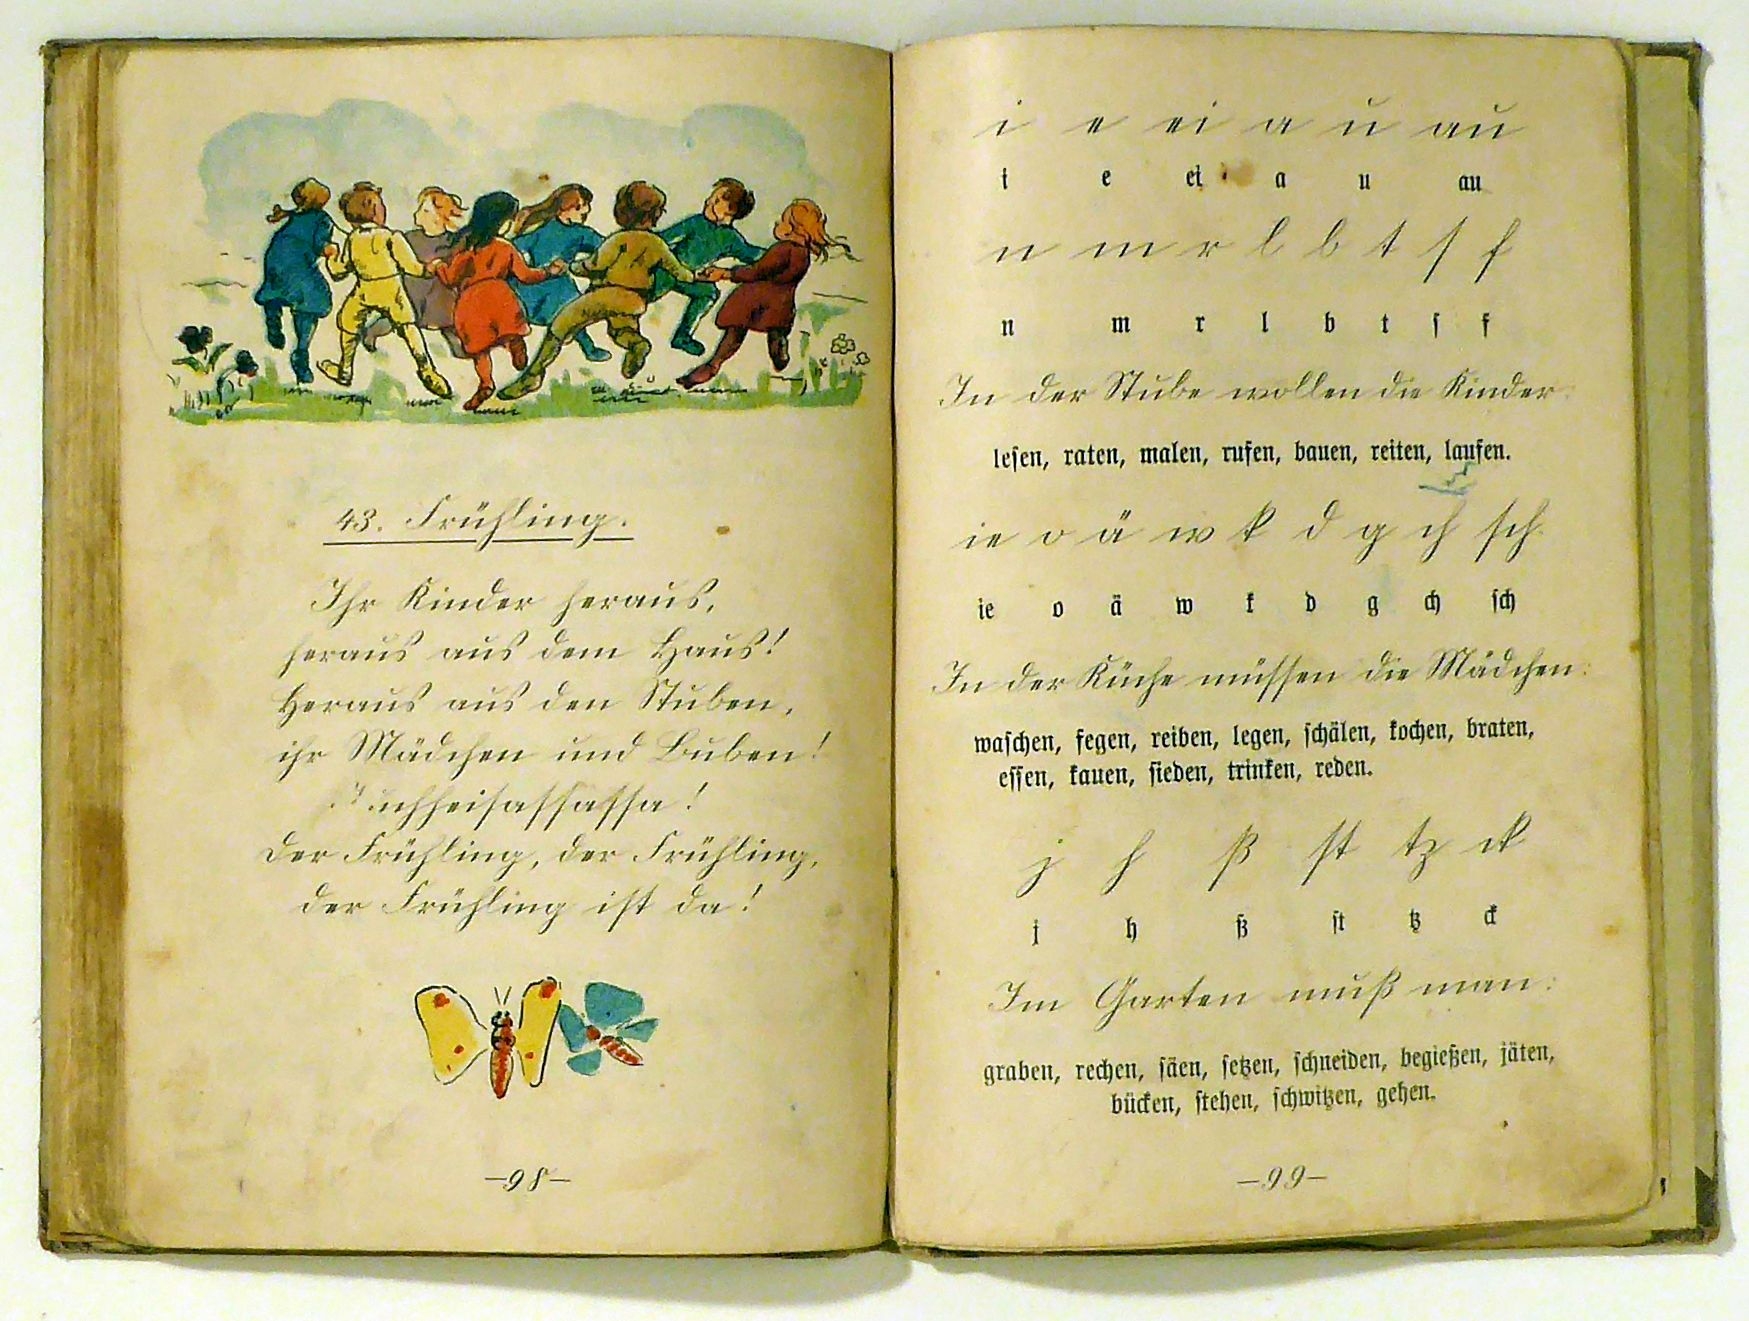 43. Frühling.
Ihr Kinder heraus,
heraus aus dem Haus!
Heraus aus den Stuben,
ihr Mädchen und Buben!
Juchheisassassa!
Der Frühling, der Frühling,
der Frühling ist da!
—98—
i e ei a u au
i e ei a u au
n m r l b t s f
n m r l b t ſ f
In der Stube wollen die Kinder:
leſen, raten, malen, rufen, bauen, reiten, laufen.
ie o ä w k d g ch sch
ie o ä w k d g ch ſch
In der Küche müssen die Mädchen:
waſchen, fegen, reiben, legen, ſchälen, kochen, braten,
eſſen, kauen, ſieden, trinken, reden.
j h ß st tz ck
j h ß ſt tz ck
Im Garten muß man:
graben, rechen, ſäen, ſetzen, ſchneiden, begießen, jäten,
bücken, ſtehen, ſchwitzen, gehen.
—99—